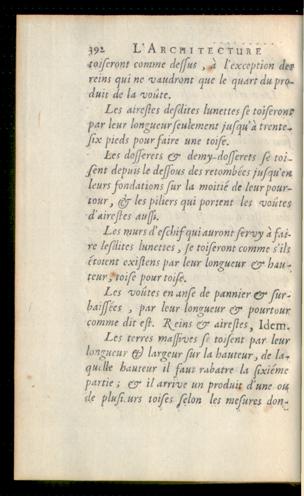 392 L'ARCHITECTURE
toiseront comme dessus, à l'exception des
reins qui ne vaudront que le quart du pro-
duit de la voûte.
Les airestes desdites lunettes se toiseront
par leur longueur seulement jusqu'à trente-
six pieds pour faire une toise.
Les dosserets & demy-dosserets se toi-
sent depuis le dessous des retombées jusqu'en
leurs fondations sur la moitié de leur pour-
tour, & les piliers qui portent les voûtes
d'airestes aussi.
Les murs d'eschif qui auront servy à fai-
re lesdites lunettes, se toiseront comme s'ils
étoient existens par leur longueur & hau-
teur, toise pour toise.
Les voûtes en anse de pannier & sur-
baissées, par leur longueur & pourtour
comme dit est. Reins & airestes, Idem.
Les terres massives se toisent par leur
longueur & largeur sur la hauteur, de la-
quelle hauteur il faut rabatre la sixiéme
partie; & il arrive un produit d'une ou
de plusieurs toises selon les mesures don-